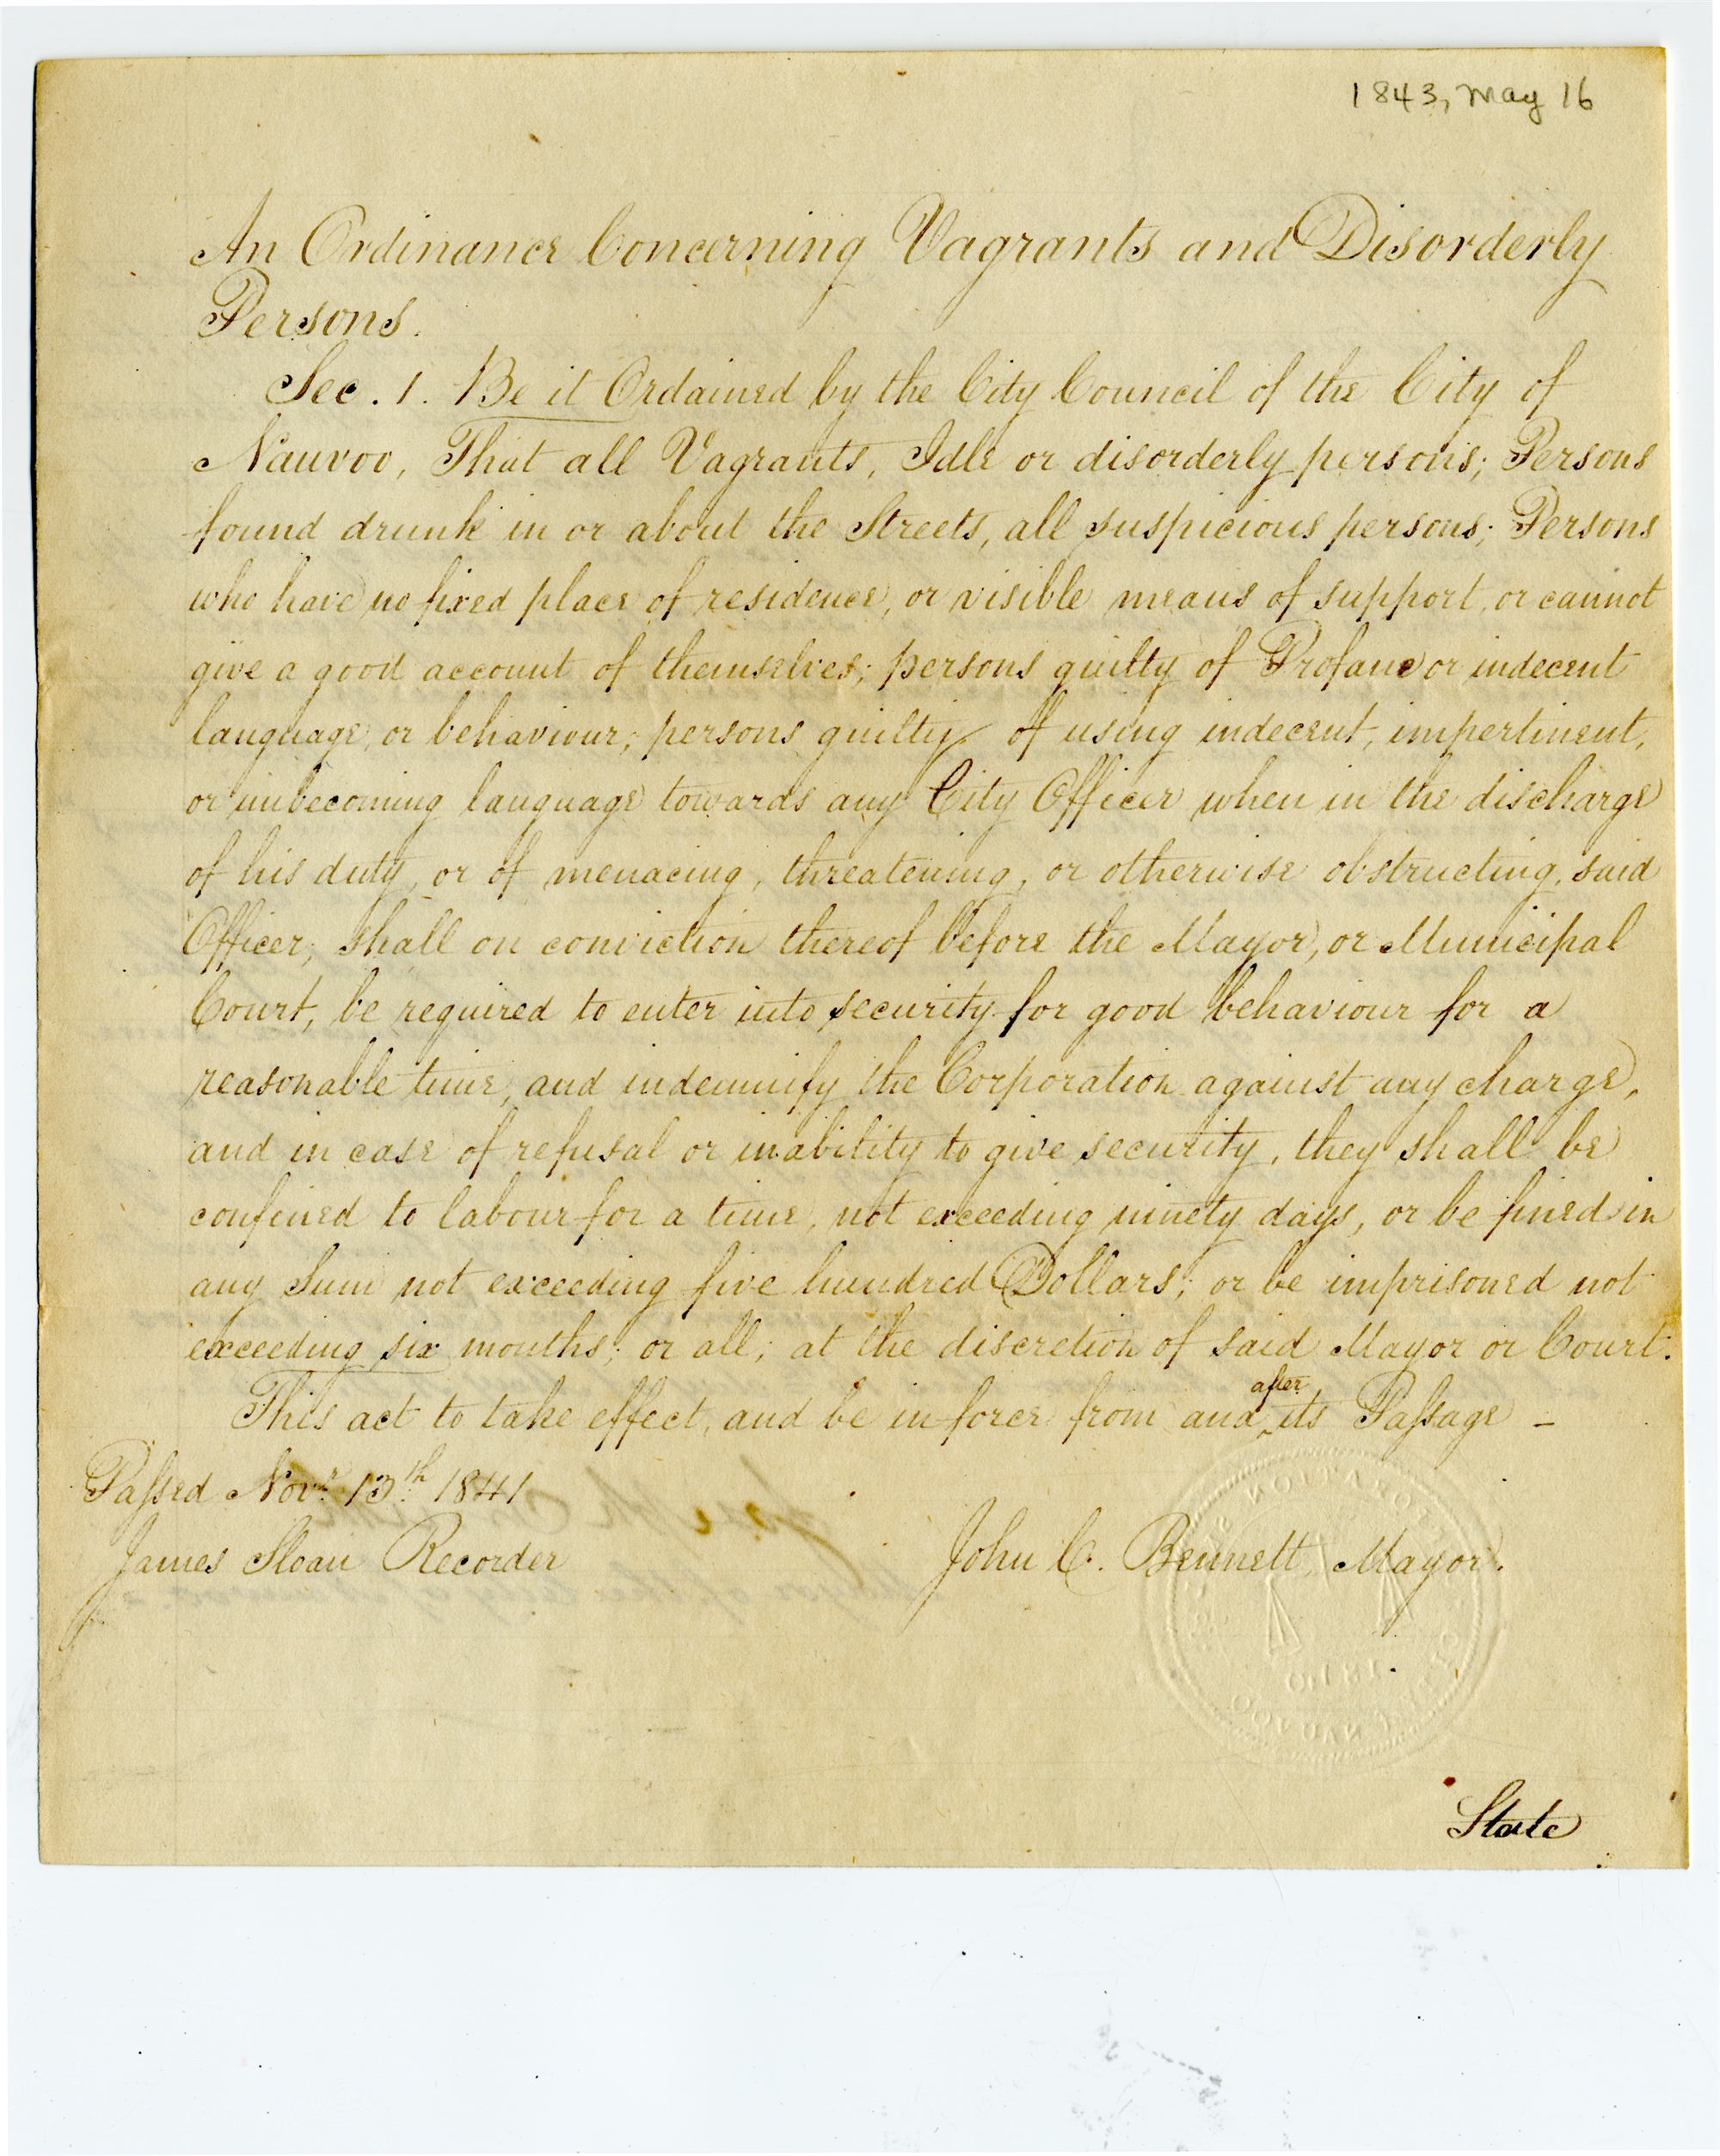 1843, May 16
An Ordinance Concerning Vagrants and Disorderly
Persons.
Sec. 1. Be it Ordained by the City Council of the City of
Nauvoo, That all Vagrants, Idle or disorderly persons; Persons
found drunk in or about the Streets, all suspicious persons; Persons
who have no fixed place of residence, or visible means of support, or cannot
give a good account of themselves; persons guilty of Profane or indecent
language, or behaviour; persons guilty of using indecent, impertinent,
or unbecoming language towards any City Officer when in the discharge
of his duty, or of menacing, threatening, or otherwise obstructing, said
Officer; shall on conviction thereof before the Mayor, or Municipal
Court, be required to enter into security for good behaviour for a
reasonable time, and indemnify the Corporation against any charge,
and in case of refusal or inability to give security, they shall be
confined to labour for a time, not exceeding ninety days, or be fined in
any Sum not exceeding five hundred Dollars; or be imprisoned not
exceeding six months; or all; at the discretion of said Mayor or Court.
This act to take effect, and be in force from and after its Paſsage –
Paſsed Novr. 13th. 1841
James Sloan Recorder
John C. Bennett, Mayor.
State